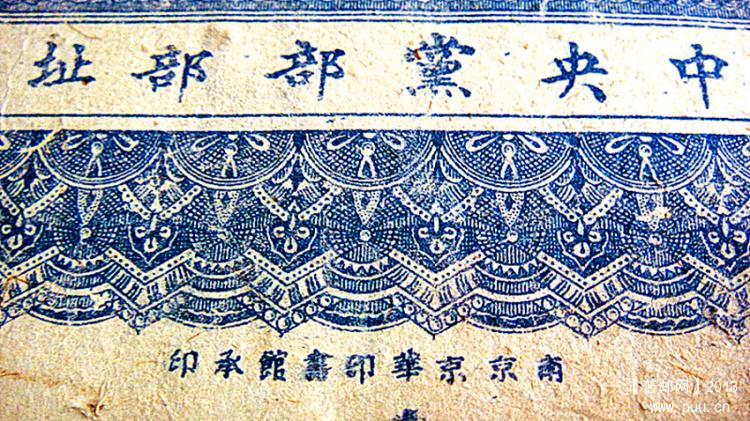 中央黨部部址
南京京華印書館承印
[芝邮网] 2013
www.puu.cn